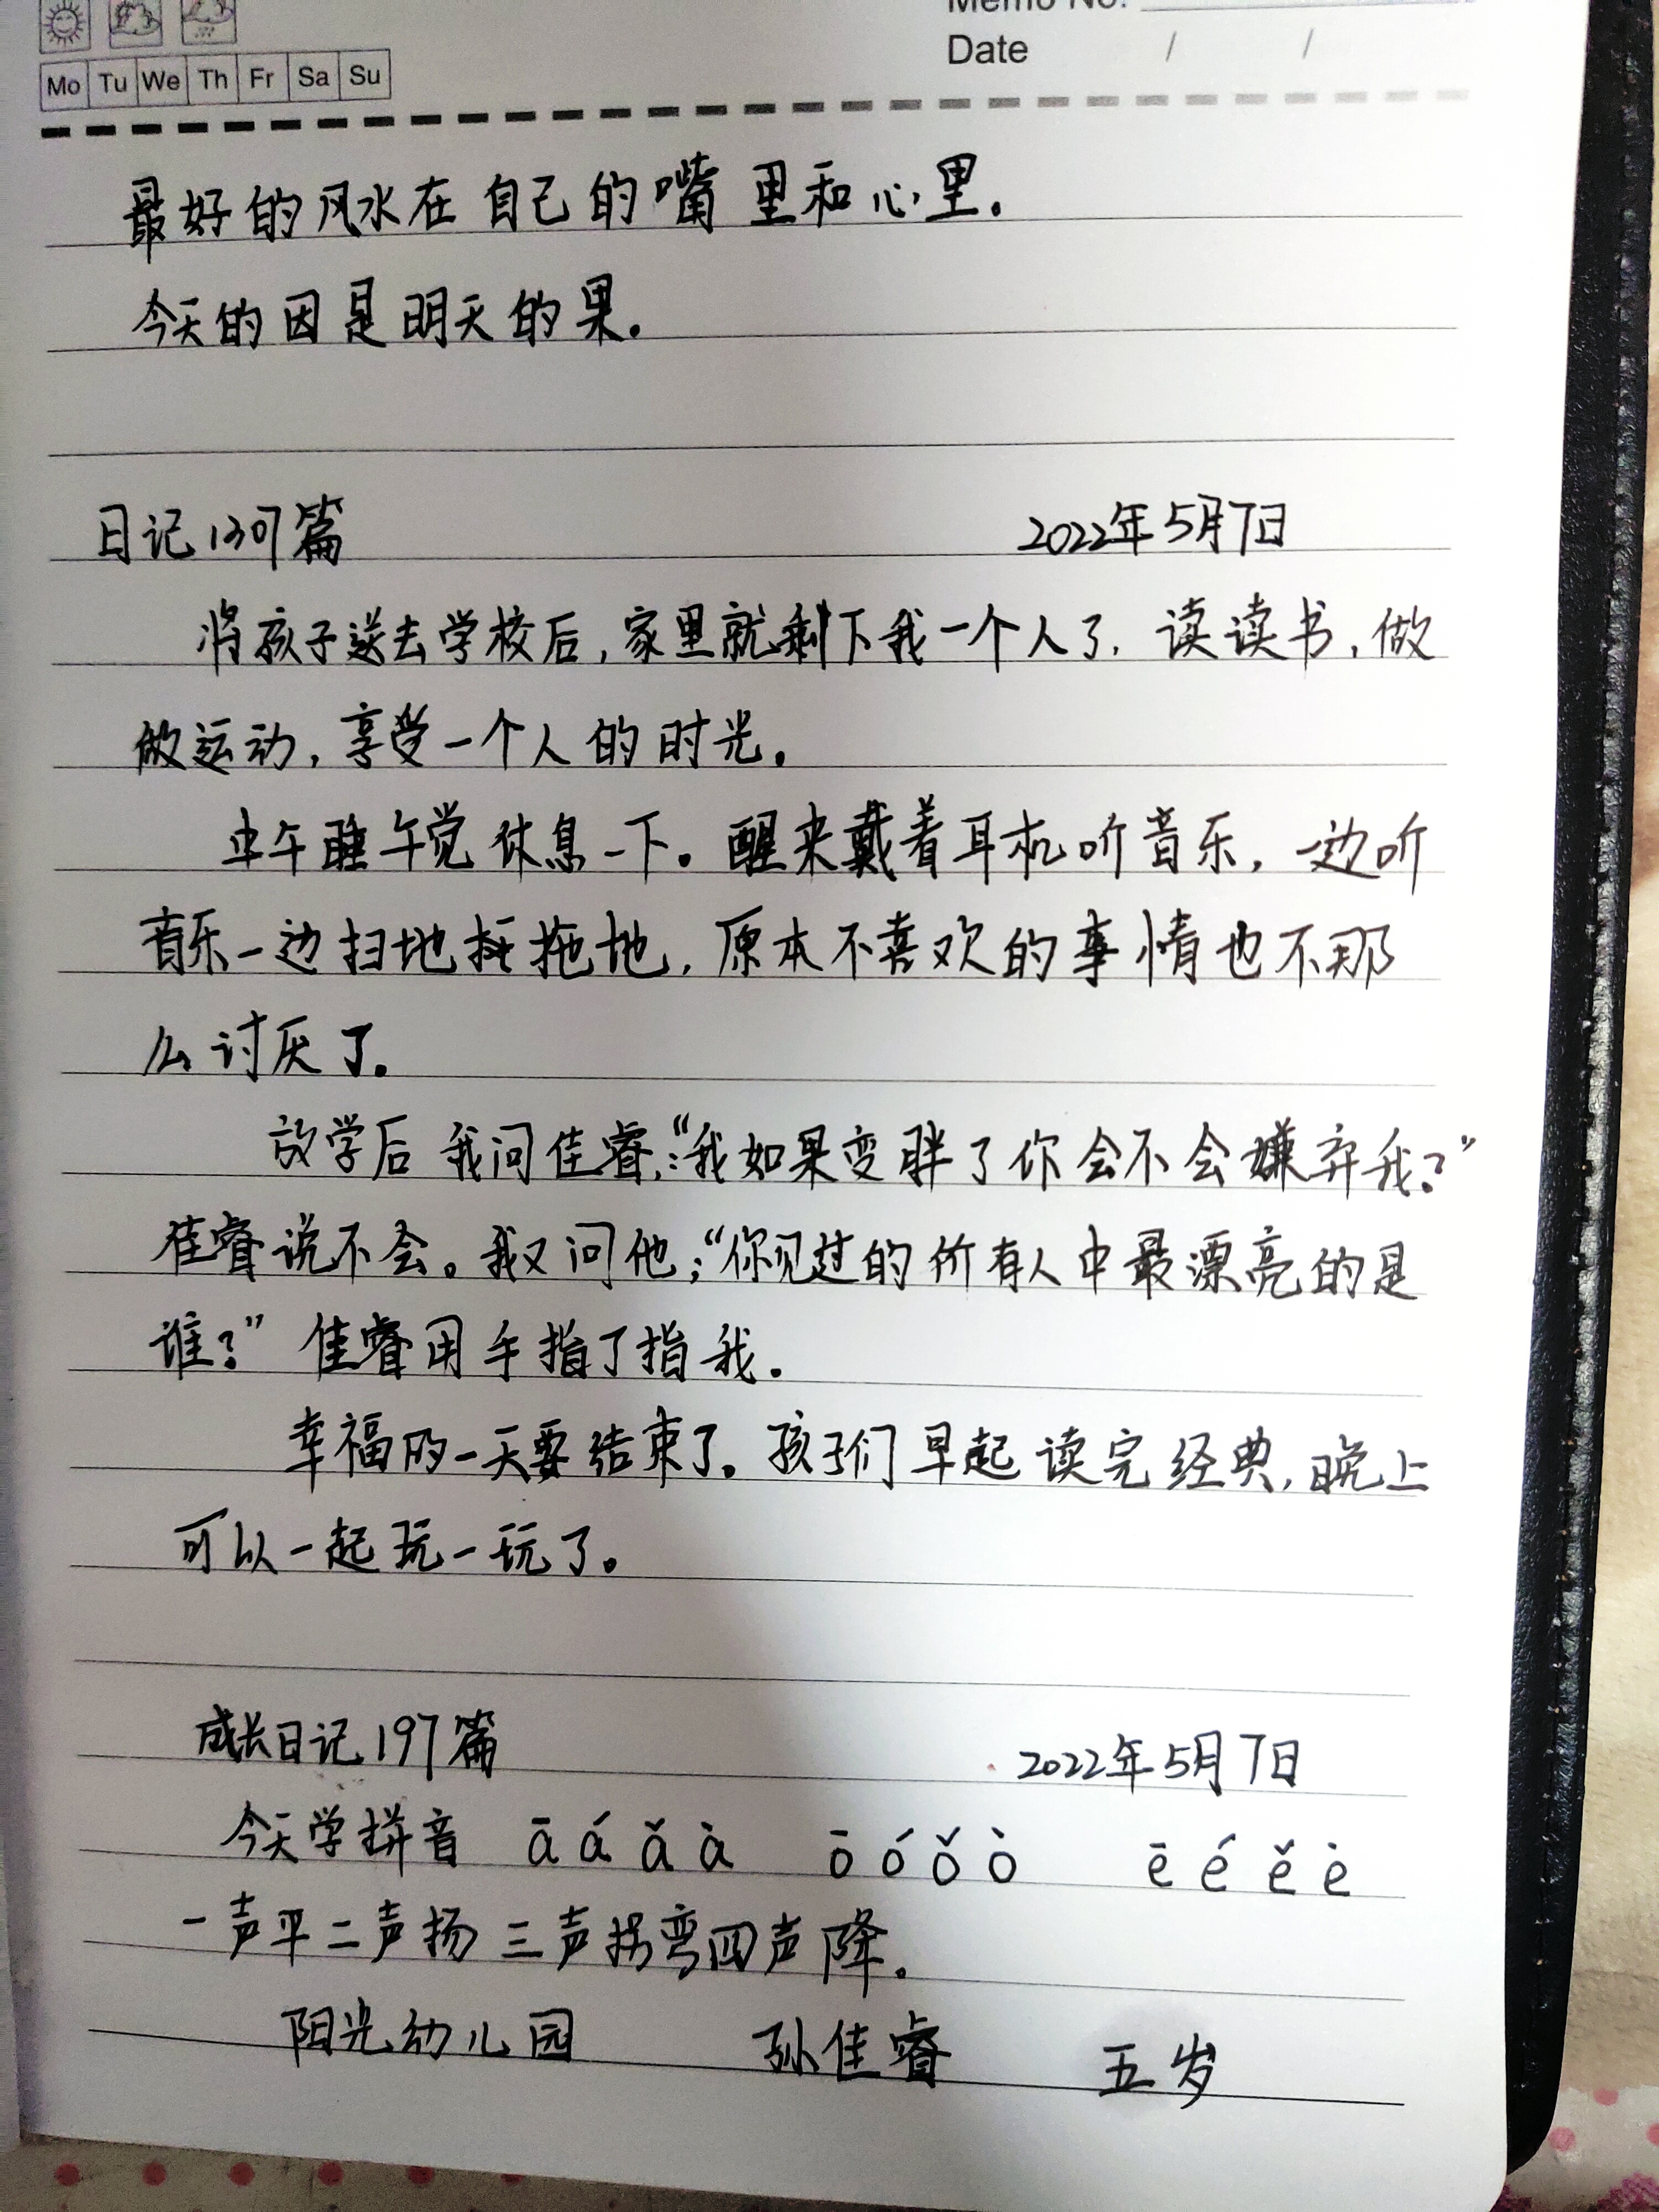 Memo No.
Mo Tu We Th Fr Sa Su
Date / /
最好的风水在自己的嘴里和心里.
今天的因是明天的果.
日记1309篇 2022年5月7日
将孩子送去学校后,家里就剩下我一个人了.读读书,做
做运动,享受一个人的时光。
中午睡午觉休息一下。醒来戴着耳机听音乐,一边听
音乐一边扫地拖地,原本不喜欢的事情也不那
么讨厌了.
放学后我问佳睿:“我如果变胖了你会不会嫌弃我?”
佳睿说不会。我又问他:“你见过的所有人中最漂亮的是
谁?”佳睿用手指了指我.
幸福的一天要结束了.孩子们早起读完经典,晚上
可以一起玩一玩了。
成长日记197篇 2022年5月7日
今天学拼音 ā á ǎ à ō ó ǒ ò ē é ě è
一声平二声扬三声拐弯四声降。
阳光幼儿园 孙佳睿 五岁